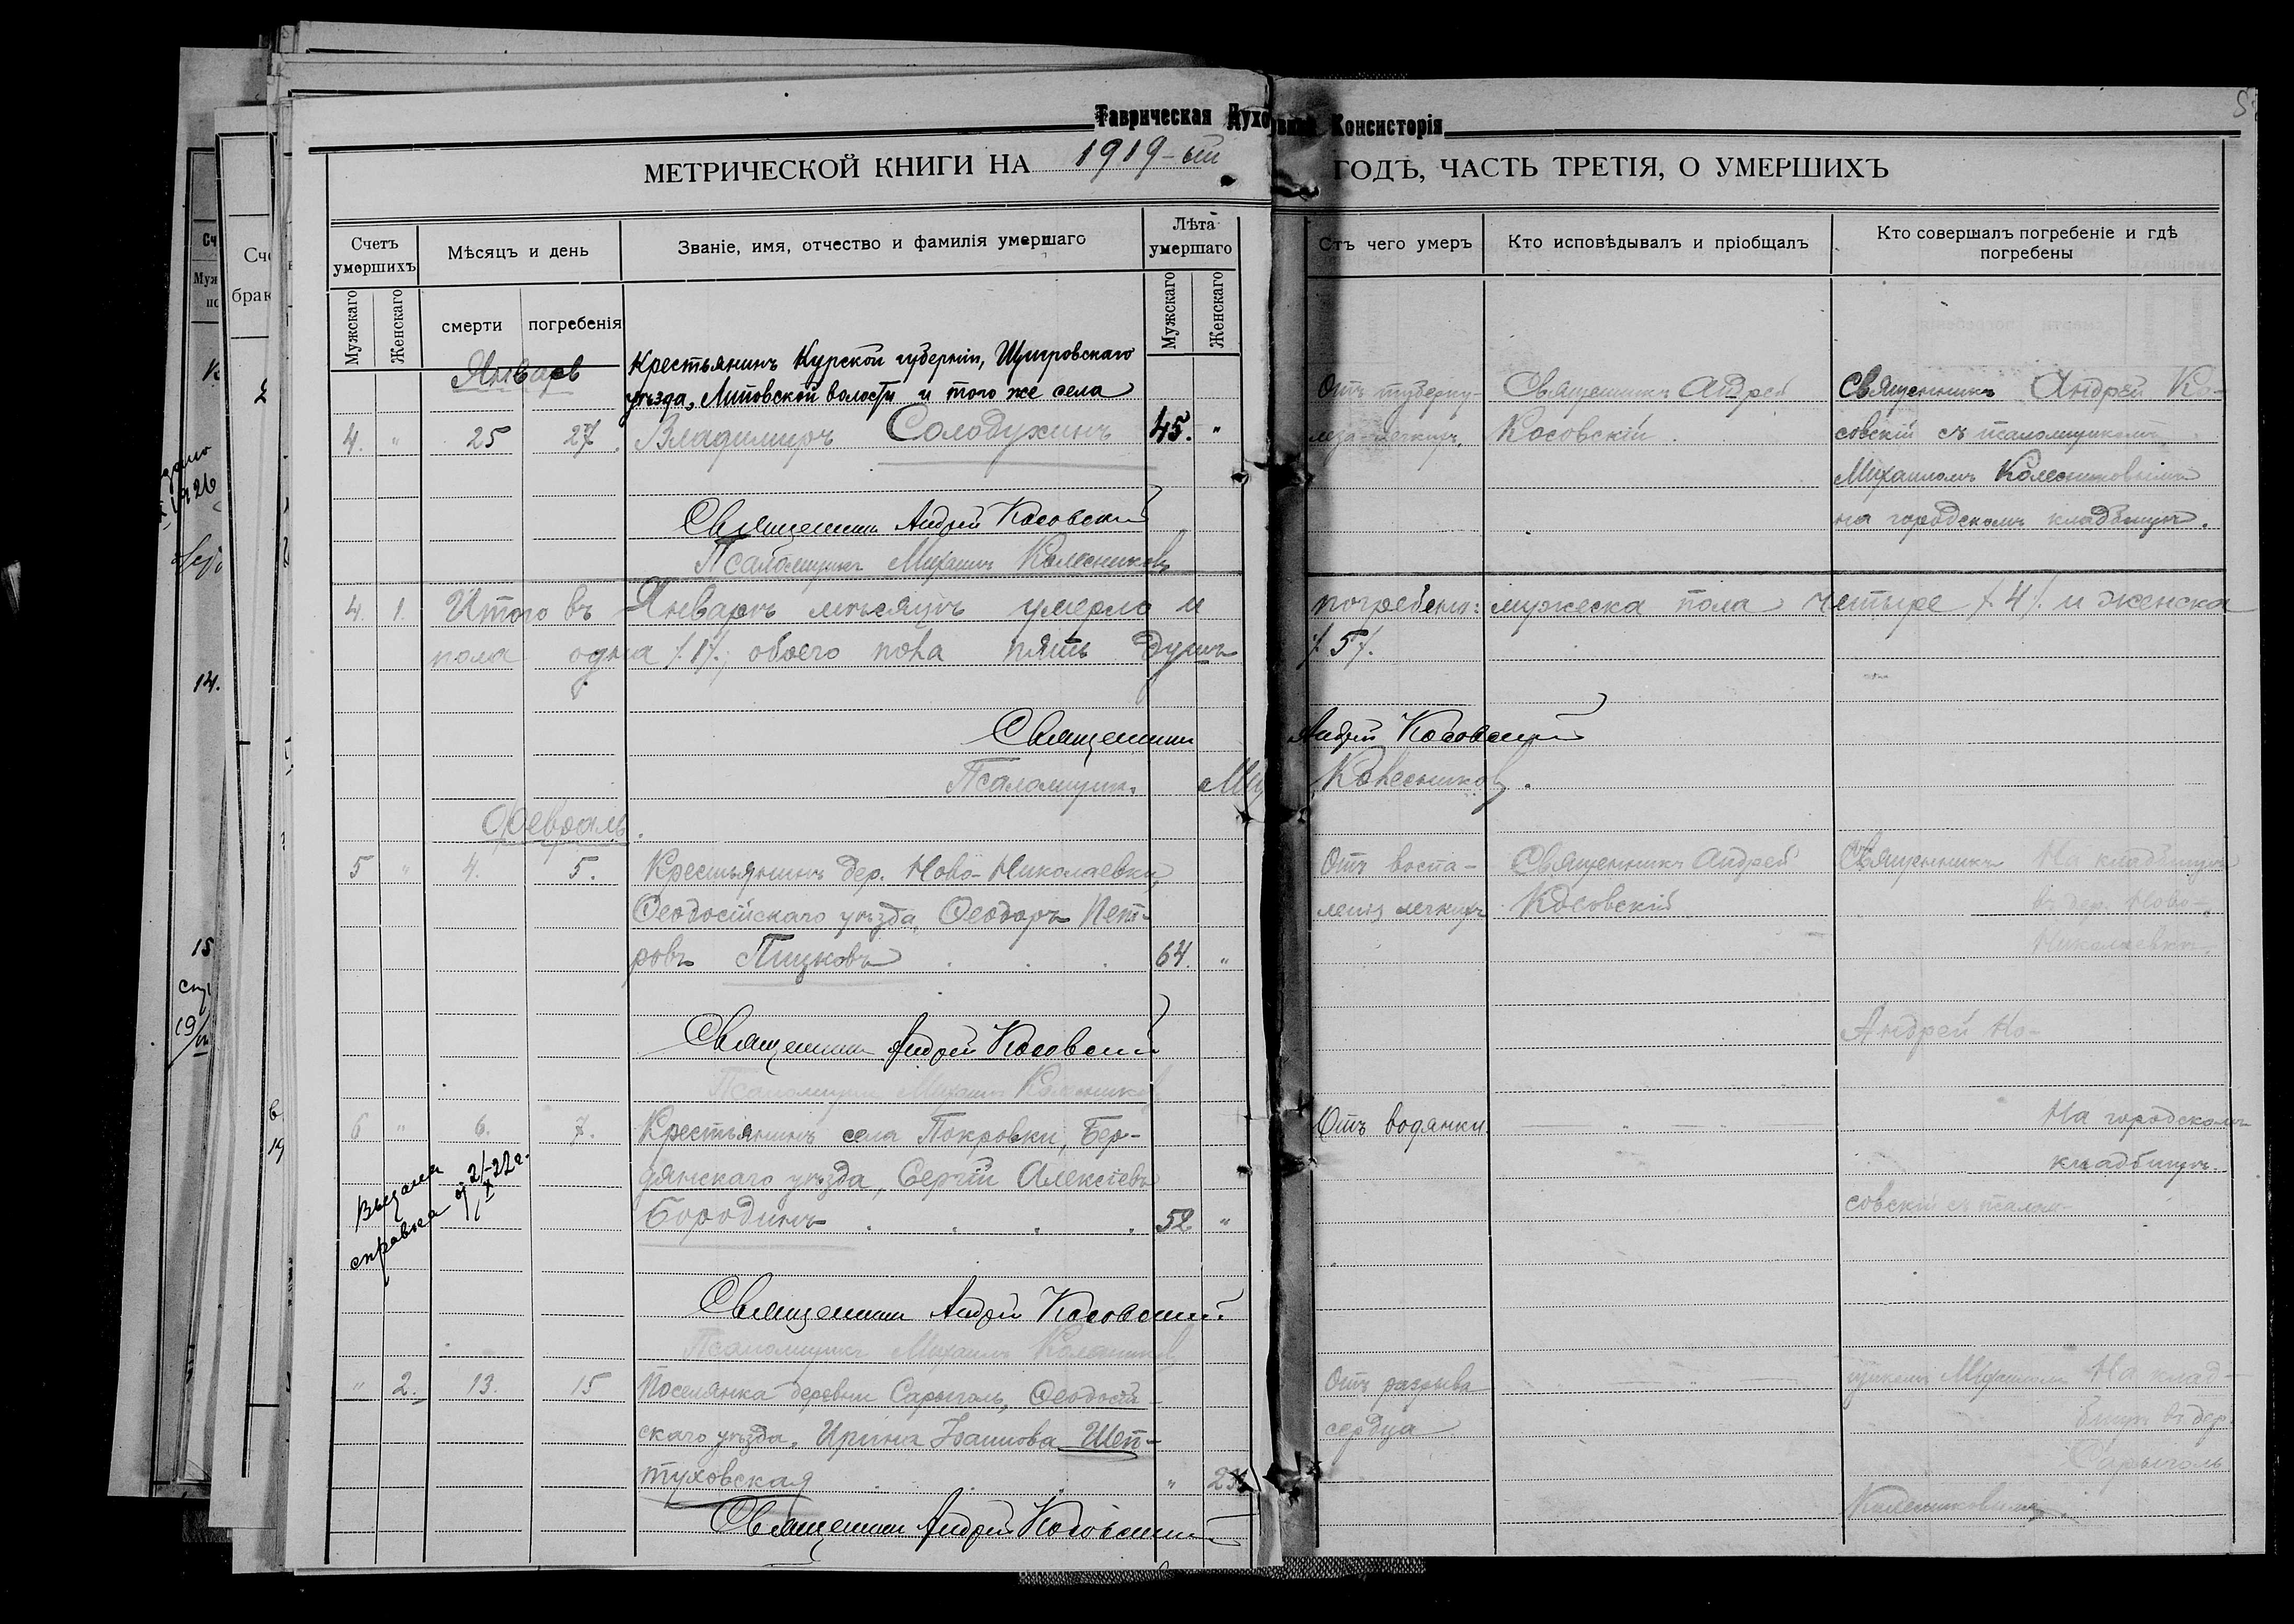 Таврическая Духовная Консисторія
МЕТРИЧЕСКОЙ КНИГИ НА 1919-ый ГОДЪ, ЧАСТЬ ТРЕТІЯ, О УМЕРШИХЪ
Счетъ умершихъ
Мѣсяцъ и день
Званіе, имя, отчество и фамилія умершаго
Лѣта умершаго
Отъ чего умеръ
Кто исповѣдывалъ и пріобщалъ
Кто совершалъ погребеніе и гдѣ погребены
Мужскаго
Женскаго
смерти
погребенія
Мужскаго
Женскаго
Январь
Крестьянинъ Курской губерніи, Щигровскаго
уѣзда, Липовской волости и того же села
4. " 25 27. Владимиръ Солодухинъ 45. "
Отъ туберку-
леза легкихъ.
Священникъ Андрей
Косовскій.
Священникъ Андрей Ко-
совскій съ псаломщикомъ
Михаиломъ Колесниковымъ
на городскомъ кладбищѣ.
Священникъ Андрей Косовскій
Псаломщикъ Михаилъ Колесниковъ
4. 1. Итого въ Январѣ мѣсяцѣ умерло и погребено: мужеска пола четыре /4/. и женска
пола одна /1/., обоего пола пять душъ /5/.
Священникъ Андрей Косовскій
Псаломщикъ Колесниковъ.
Февраль.
5 " 4. 5. Крестьянинъ дер. Ново-Николаевки,
Ѳеодосійскаго уѣзда, Ѳеодоръ Пет-
ровъ Пицковъ 64. "
Отъ воспа-
ленія легкихъ
Священникъ Андрей
Косовскій
Священникъ
На кладбищѣ
въ дер. Ново-
Николаевкѣ.
Священникъ Андрей Косовскій
Псаломщикъ Михаилъ Колесниковъ
Андрей Ко-
6 " 6. 7. Крестьянинъ села Покровки, Бер-
дянскаго уѣзда, Сергій Алексіевъ
Бородинъ 52 "
Отъ водянки.
На городскомъ
кладбищѣ.
совскій съ псалом-
Выдана
справка 2/X-22г.
Священникъ Андрей Косовскій.
Псаломщикъ Михаилъ Колесниковъ
" 2. 13. 15 Поселянка деревни Сарыголь, Ѳеодосій-
скаго уѣзда, Ирина Іванова Шеп-
туховская "
Отъ разрыва
сердца
щикомъ Михаиломъ
На клад-
бищѣ въ дер.
Сарыголь
Колесниковымъ.
Священникъ Андрей Косовскій